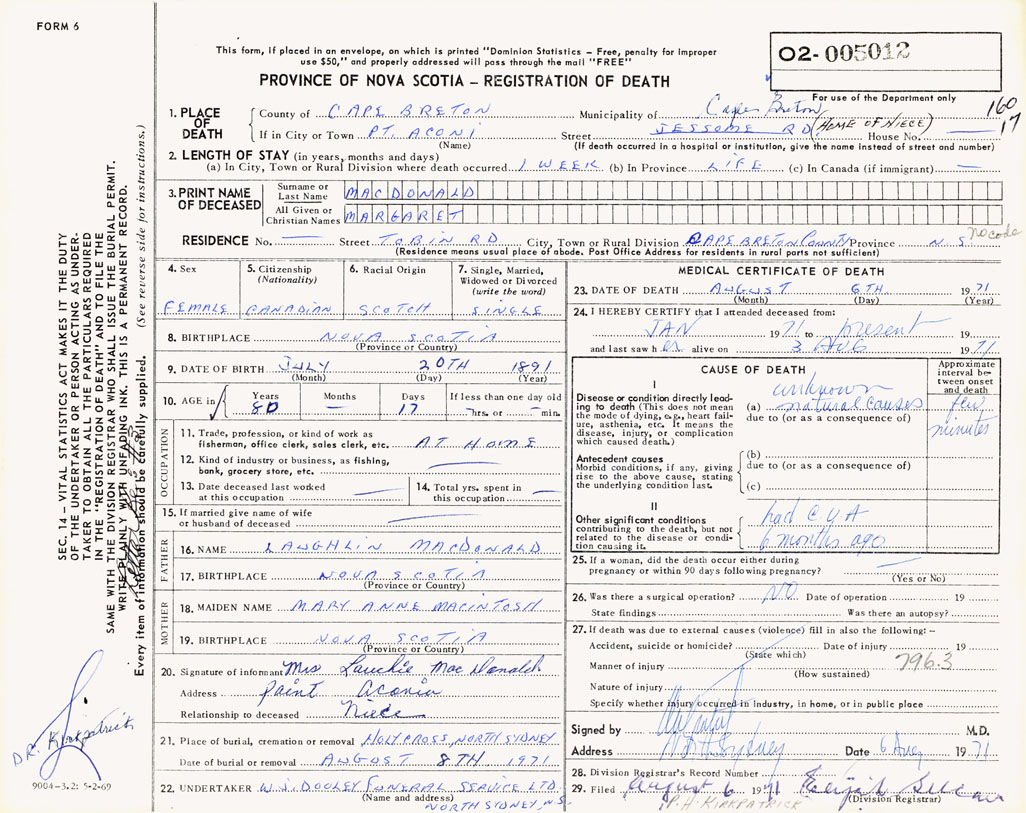 FORM 6
This form, if placed in an envelope, on which is printed "Dominion Statistics – Free, penalty for improper
use $50," and properly addressed will pass through the mail "FREE"
PROVINCE OF NOVA SCOTIA – REGISTRATION OF DEATH
02-005012
For use of the Department only
160
17
1. PLACE OF DEATH
County of CAPE BRETON Municipality of Cape Breton
If in City or Town PT. ACONI Street JESSOME RD (HOME OF NIECE) House No. —
(Name) (If death occurred in a hospital or institution, give the name instead of street and number)
2. LENGTH OF STAY (in years, months and days)
(a) In City, Town or Rural Division where death occurred 1 WEEK (b) In Province LIFE (c) In Canada (if immigrant) —
3. PRINT NAME OF DECEASED
Surname or Last Name MACDONALD
All Given or Christian Names MARGARET
RESIDENCE No. — Street TOBIN RD City, Town or Rural Division CAPE BRETON COUNTY Province N.S no code
(Residence means usual place of abode. Post Office Address for residents in rural parts not sufficient)
4. Sex
FEMALE
5. Citizenship (Nationality)
CANADIAN
6. Racial Origin
SCOTCH
7. Single, Married, Widowed or Divorced (write the word)
SINGLE
8. BIRTHPLACE NOVA SCOTIA
(Province or Country)
9. DATE OF BIRTH JULY 20TH 1891
(Month) (Day) (Year)
10. AGE in Years Months Days If less than one day
80 — 17 hrs. or — min.
OCCUPATION
11. Trade, profession, or kind of work as
fisherman, office clerk, sales clerk, etc. AT HOME
12. Kind of industry or business, as fishing,
bank, grocery store, etc. —
13. Date deceased last worked
at this occupation —
14. Total yrs. spent in
this occupation —
15. If married give name of wife
or husband of deceased —
FATHER
16. NAME LAUGHLIN MACDONALD
17. BIRTHPLACE NOVA SCOTIA
(Province or Country)
MOTHER
18. MAIDEN NAME MARY ANNE MACINTOSH
19. BIRTHPLACE NOVA SCOTIA
(Province or Country)
20. Signature of informant Mrs Lauchie MacDonald
Address Point Aconia
Relationship to deceased Niece
21. Place of burial, cremation or removal HOLY CROSS NORTH SYDNEY
Date of burial or removal AUGUST 8TH 1971
22. UNDERTAKER W.J. DOOLEY FUNERAL SERVICE LTD.
(Name and address) NORTH SYDNEY, N.S.
MEDICAL CERTIFICATE OF DEATH
23. DATE OF DEATH AUGUST 6TH 1971
(Month) (Day) (Year)
24. I HEREBY CERTIFY that I attended deceased from:
JAN 1971 to present 19
and last saw her alive on 3 AUG 1971
CAUSE OF DEATH
Approximate interval between onset and death
I
Disease or condition directly leading to death (This does not mean the mode of dying, e.g., heart failure, asthenia, etc. It means the disease, injury, or complication which caused death.)
(a) unknown natural causes
due to (or as a consequence of)
few minutes
Antecedent causes
Morbid conditions, if any, giving rise to the above cause, stating the underlying condition last.
(b)
due to (or as a consequence of)
(c)
II
Other significant conditions
contributing to the death, but not related to the disease or condition causing it.
had CVA
6 months ago
25. If a woman, did the death occur either during
pregnancy or within 90 days following pregnancy? —
(Yes or No)
26. Was there a surgical operation? NO Date of operation 19
State findings Was there an autopsy?
27. If death was due to external causes (violence) fill in also the following: –
Accident, suicide or homicide? Date of injury 19
(State which)
796.3
Manner of injury
(How sustained)
Nature of injury
Specify whether injury occurred in industry, in home, or in public place
Signed by M.D.
Address Nth Sydney Date 6 Aug 1971
28. Division Registrar's Record Number
29. Filed August 6 1971 Elijah
(Division Registrar)
P.H. KIRKPATRICK
SEC. 14 – VITAL STATISTICS ACT MAKES IT THE DUTY
OF THE UNDERTAKER OR PERSON ACTING AS UNDER-
TAKER TO OBTAIN THE PARTICULARS REQUIRED
IN THE "REGISTRATION OF DEATH" AND TO FILE THE
SAME WITH THE DIVISION REGISTRAR WHO SHALL ISSUE THE BURIAL PERMIT.
WRITE PLAINLY WITH UNFADING INK. THIS IS A PERMANENT RECORD.
Every item of information should be carefully supplied. (See reverse side for instructions.)
DR. Kirkpatrick
9004-3.2: 5-2-69